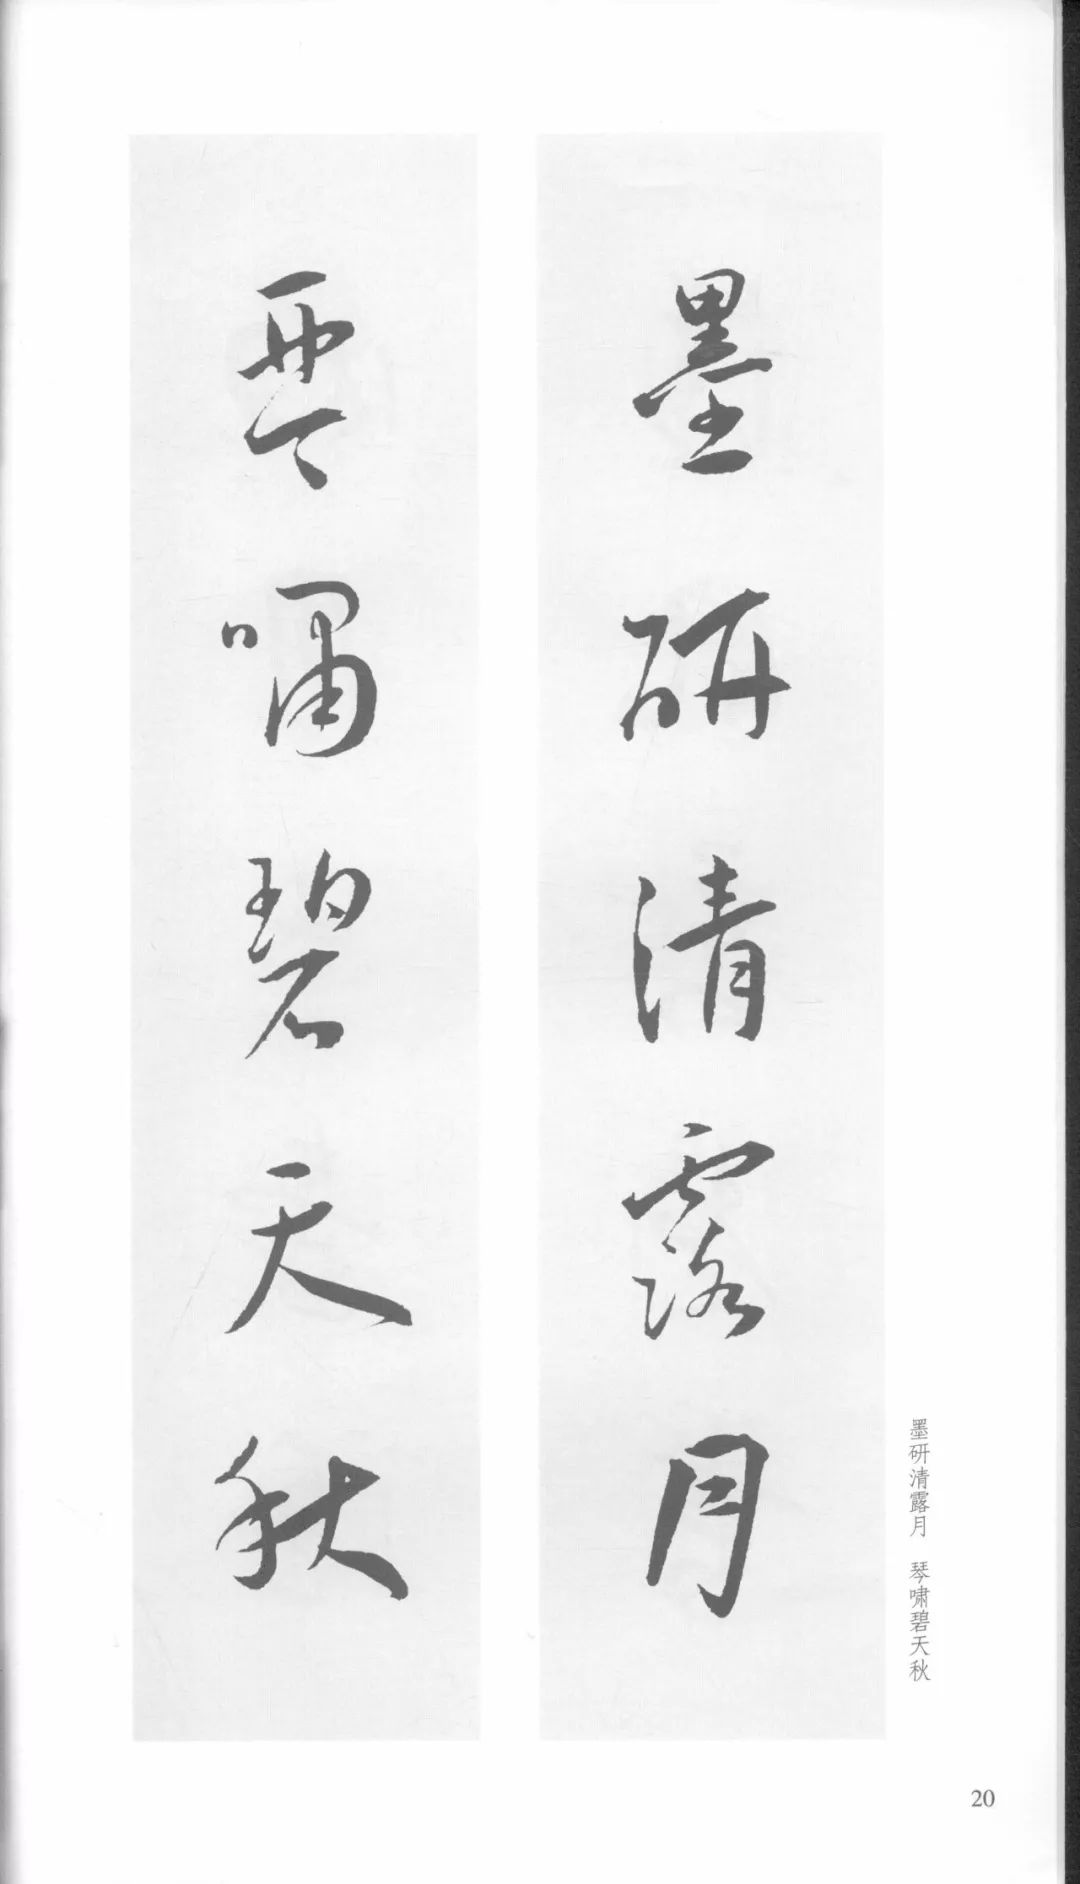 墨研清露月
琴啸碧天秋
墨研清露月　琴啸碧天秋
20